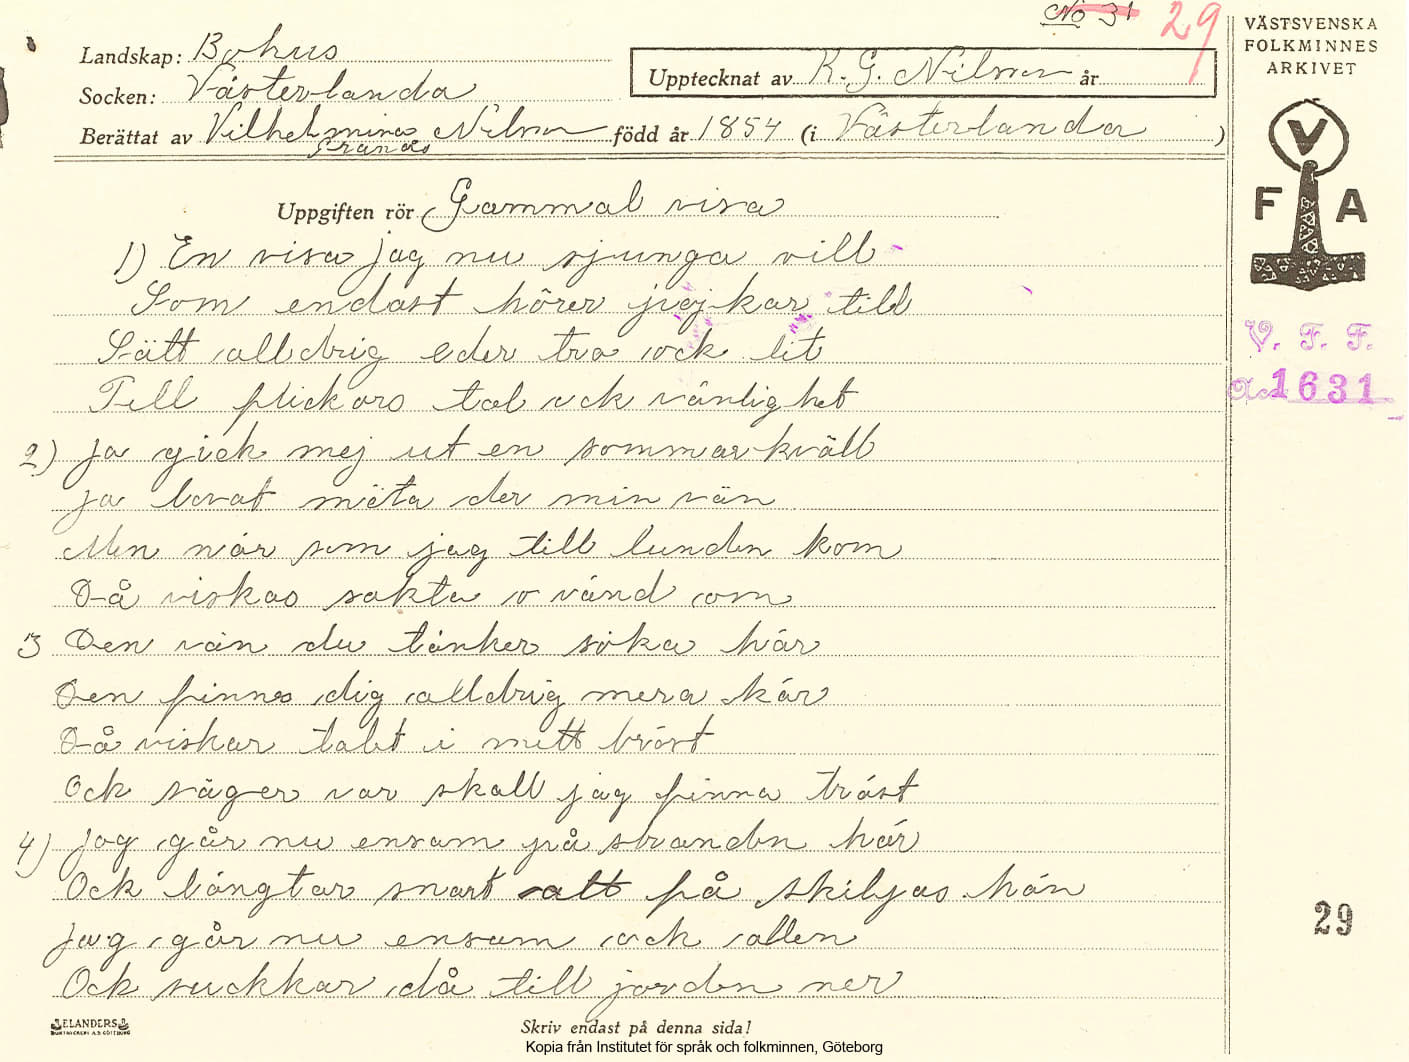 No 31 29
VÄSTSVENSKA
FOLKMINNES
ARKIVET
Landskap: Bohus
Upptecknat av K. G. Nilson år
Socken: Västerlanda
Berättat av Vilhelmina Nilson född år 1854 (i Västerlanda)
Uppgiften rör Gammal visa
V
F A
1) En visa jag nu sjunga vill
Som endast hörer jojkar till
Sätt alldrig eder tro ock lit
Till flickors tal ock vänlighet
2) Ja gick mej ut en sommarkväll
ja lovat möta der min vän
Men når som jag till lunden kom
Då viskas sakta o vänd om
3 Den vän du tänker söka här
Den finnes dig alldrig mera kär
Då viskar talet i mitt bröst
Ock säger var skall jag finna tröst
4) Jag går nu ensam på stranden här
Ock längtar snart att få skiljas hän
Jag går nu ensam ock allen
Ock suckkar då till jorden ner
V. F. F.
1631
29
ELANDERS
Skriv endast på denna sida!
Kopia från Institutet för språk och folkminnen, Göteborg